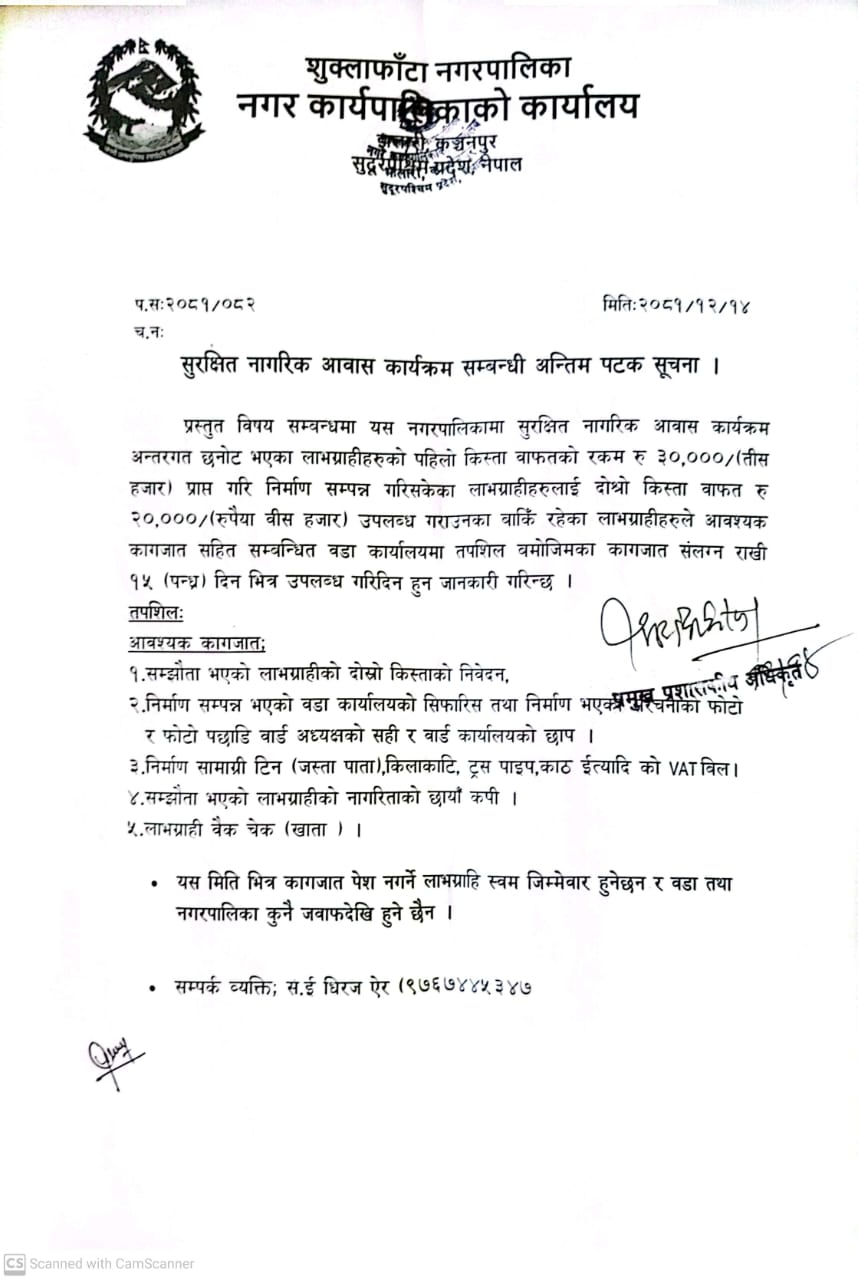 शुक्लाफाँटा नगरपालिका
नगर कार्यपालिकाको कार्यालय
झलारी, कञ्चनपुर
सुदूरपश्चिम प्रदेश, नेपाल
सुदूरपश्चिम प्रदेश,
प.सः२०८१/०८२
मितिः२०८१/१२/१४
च.नः
सुरक्षित नागरिक आवास कार्यक्रम सम्बन्धी अन्तिम पटक सूचना ।
प्रस्तुत विषय सम्बन्धमा यस नगरपालिकामा सुरक्षित नागरिक आवास कार्यक्रम
अन्तरगत छनोट भएका लाभग्राहीहरुको पहिलो किस्ता वाफतको रकम रु ३०,०००/(तीस
हजार) प्राप्त गरि निर्माण सम्पन्न गरिसकेका लाभग्राहीहरुलाई दोश्रो किस्ता वाफत रु
२०,०००/(रुपैया वीस हजार) उपलब्ध गराउनका वाकिँ रहेका लाभग्राहीहरुले आवश्यक
कागजात सहित सम्बन्धित वडा कार्यालयमा तपशिल वमोजिमका कागजात संलग्न राखी
१५ (पन्ध्र) दिन भित्र उपलब्ध गरिदिन हुन जानकारी गरिन्छ ।
तपशिलः
आवश्यक कागजात;
१.सम्झौता भएको लाभग्राहीको दोस्रो किस्ताको निवेदन,
प्रमुख प्रशासकीय अधिकृत
२.निर्माण सम्पन्न भएको वडा कार्यालयको सिफारिस तथा निर्माण भएको संरचनाको फोटो
र फोटो पछाडि वार्ड अध्यक्षको सही र वार्ड कार्यालयको छाप ।
३.निर्माण सामाग्री टिन (जस्ता पाता),किलाकाटि, ट्रस पाइप,काठ ईत्यादि को VAT विल।
४.सम्झौता भएको लाभग्राहीको नागरिताको छायाँ कपी ।
५.लाभग्राही वैक चेक (खाता ) ।
• यस मिति भित्र कागजात पेश नगर्ने लाभग्राहि स्वम जिम्मेवार हुनेछन र वडा तथा
नगरपालिका कुनै जवाफदेखि हुने छैन ।
• सम्पर्क व्यक्ति; स.ई धिरज ऐर (९७६७४४५३४७
CS Scanned with CamScanner